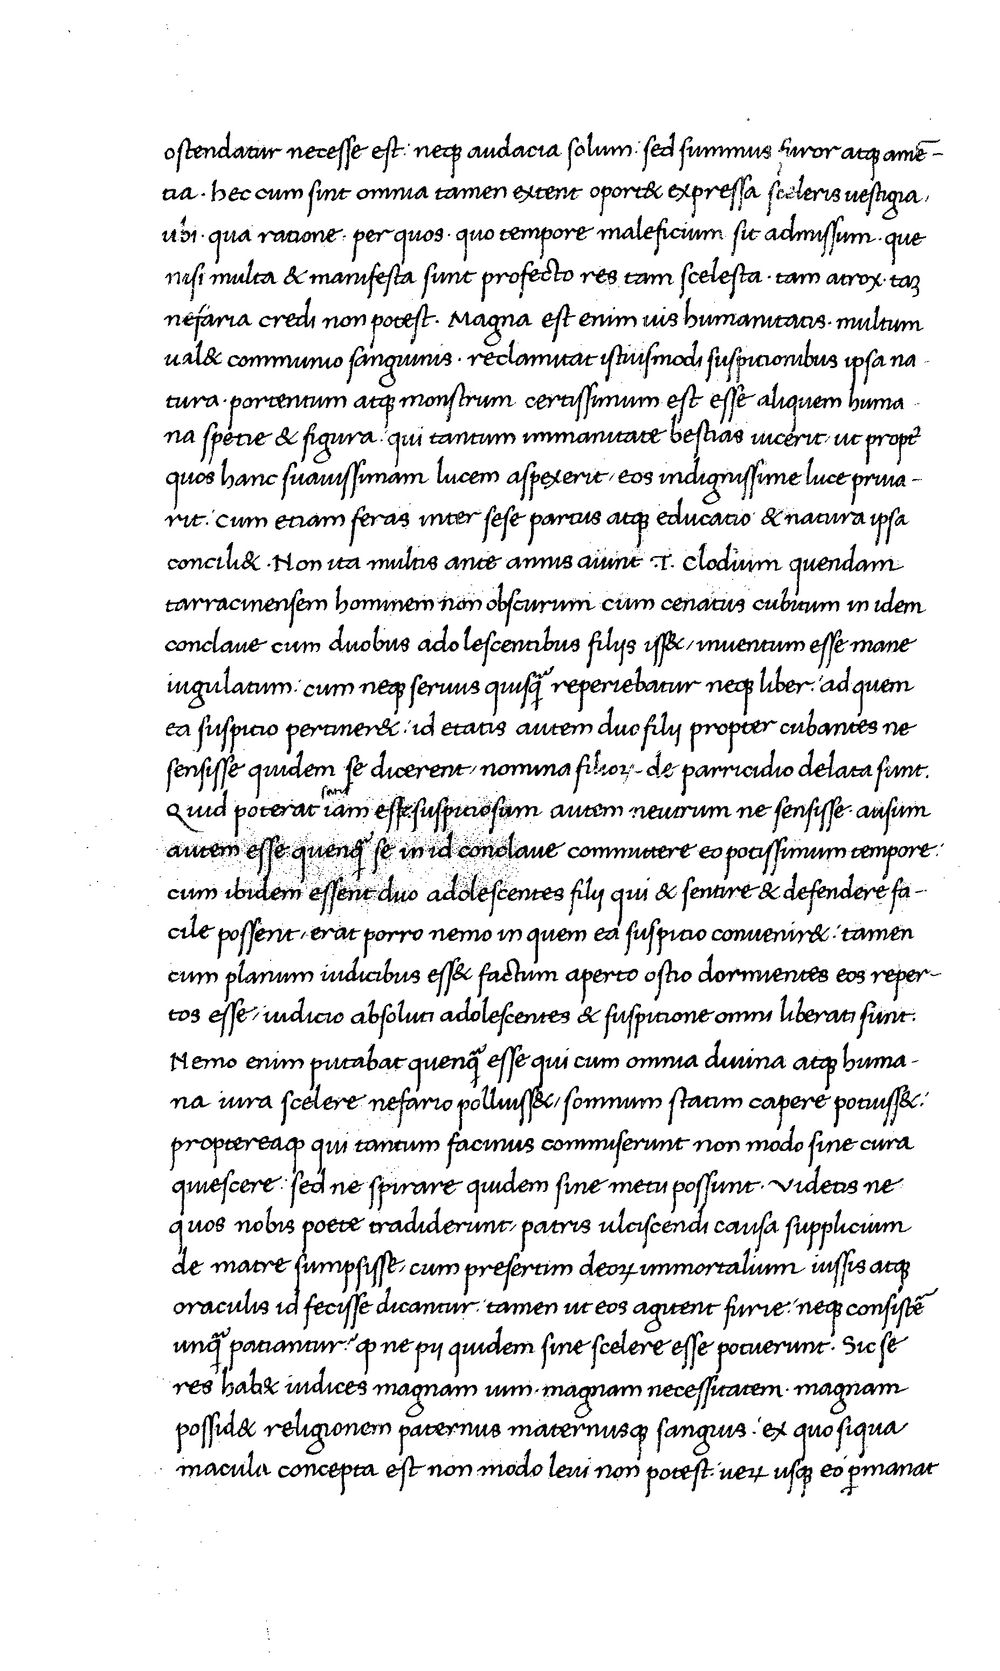 ostendatur necesse est: neqꝫ audacia solum: sed summus furor atqꝫ amē-
tia · hec cum sint omnia tamen extent oport& expressa sceleris uestigia,
ubi · qua ratione · per quos · quo tempore maleficium sit admissum · que
nisi multa & manifesta sunt profecto res tam scelesta · tam atrox · taꝫ
nefaria credi non potest · Magna est enim uis humanitatis · multum
ual& communio sanguinis · reclamitat istiusmodi suspitionibus ipsa na-
tura · portentum atqꝫ monstrum certissimum est esse aliquem huma-
na spetie & figura: qui tantum immanitate bestias uicerit, ut propt̉
quos hanc suauissimam lucem aspexerit, eos indignissime luce priua-
rit: Cum etiam feras inter sese partus atqꝫ educatio & natura ipsa
concili& · Non ita multis ante annis aiunt .T. Clodium quendam
tarracinensem hominem non obscurum cum cenatus cubitum in idem
conclaue cum duobus adolescentibus filijs iss&, inuentum esse mane
iugulatum: cum neqꝫ seruus quisqᷓ reperiebatur neqꝫ liber: ad quem
ea suspitio pertiner&: id etatis autem duo filij propter cubantes ne
sensisse quidem se dicerent, nomina filioꝝ - de parricidio delata sunt.
Quid poterat iam esse suspitiosum autem neutrum ne sensisse · ausum
autem esse quenqᷓ se in id conclaue committere eo potissimum tempore:
cum ibidem essent duo adolescentes filij qui & sentire & defendere fa-
cile possent, erat porro nemo in quem ea suspitio conuenir&: tamen
cum planum iudicibus ess& factum aperto ostio dormientes eos reper-
tos esse, iudicio absoluti adolescentes & suspitione omni liberati sunt.
Nemo enim putabat quenqᷓ esse qui cum omnia diuina atqꝫ huma-
na iura scelere nefario polluiss&, somnum statim capere potuiss&:
propterea ꝙ qui tantum facinus commiserunt non modo sine cura
quiescere: sed ne spirare quidem sine metu possunt · Videtis ne
quos nobis poete tradiderunt, patris ulciscendi causa supplicium
de matre sumpsisse, cum presertim deoꝝ immortalium iussis atqꝫ
oraculis id fecisse dicantur: tamen ut eos agitent furie: neqꝫ consistē
unqᷓ patiantur: ꝙ ne pij quidem sine scelere esse potuerunt · Sic se
res hab& iudices magnam uim · magnam necessitatem · magnam
possid& religionem paternus maternusqꝫ sanguis: ex quo siqua
macula concepta est non modo leui non potest: ueꝝ usqꝫ eo ꝑmanat